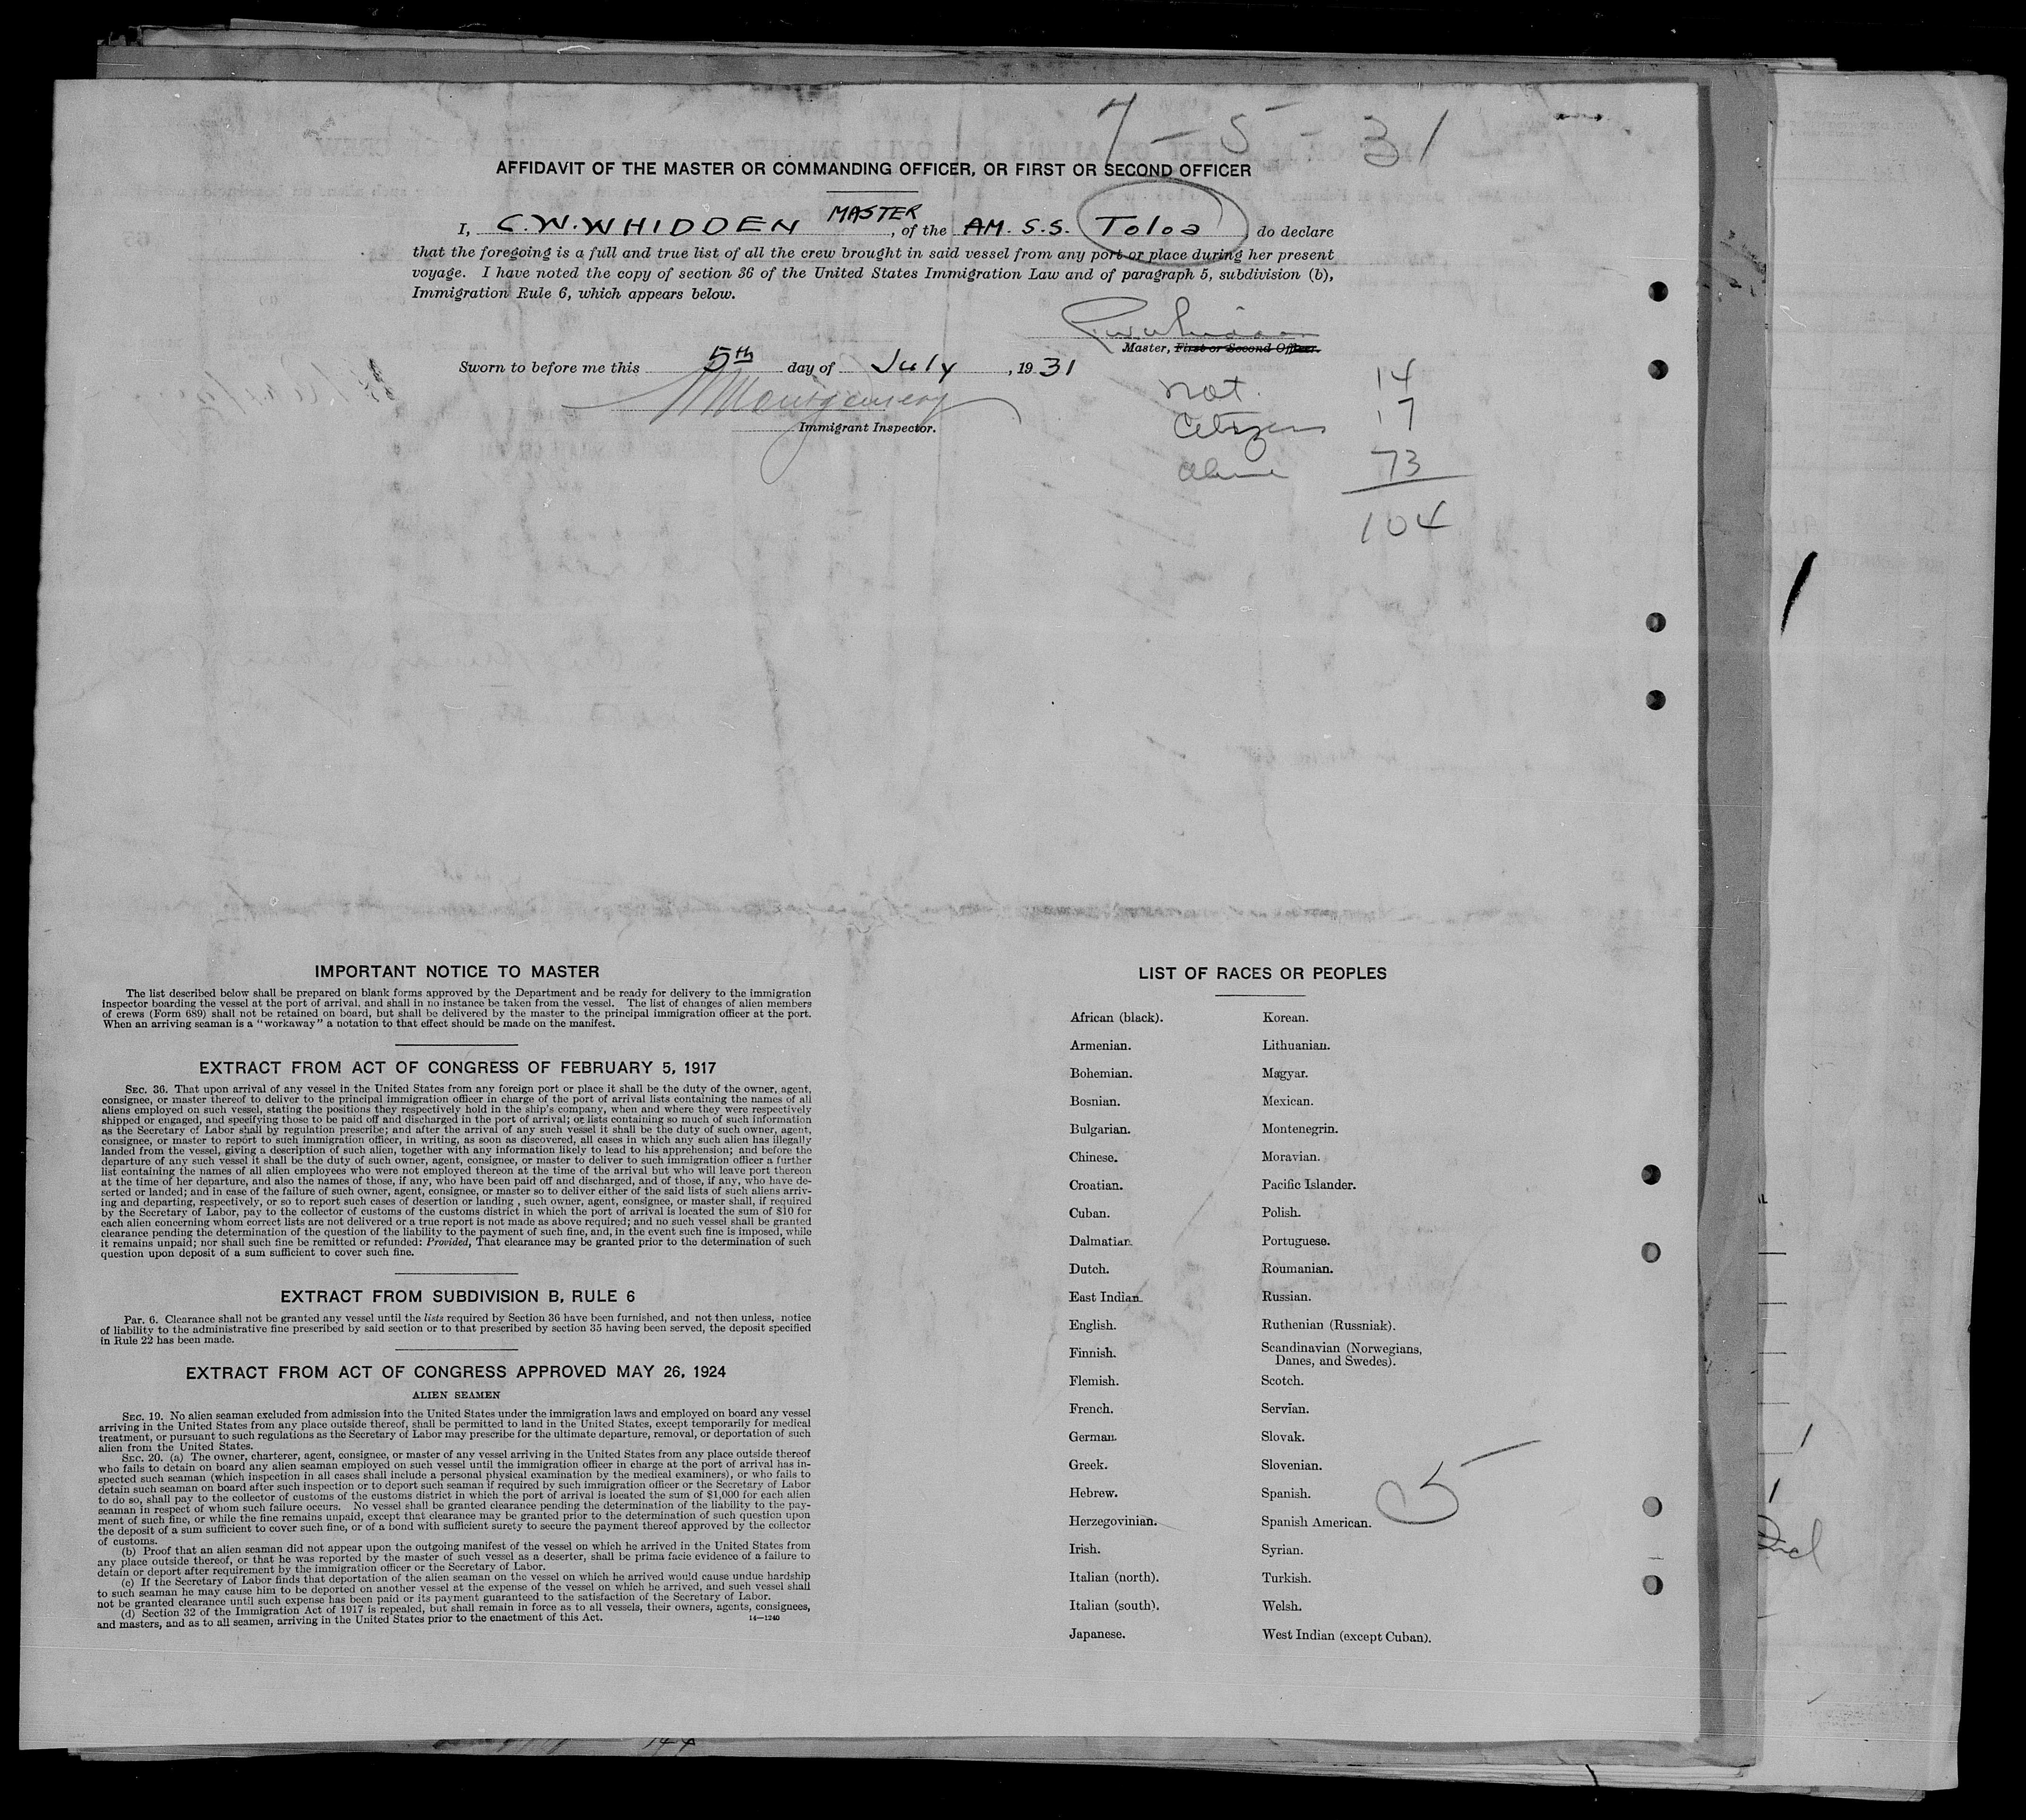 7 - 5 - 31
AFFIDAVIT OF THE MASTER OR COMMANDING OFFICER, OR FIRST OR SECOND OFFICER
I, C.W. WHIDDEN MASTER, of the AM. S.S. Toloa do declare
that the foregoing is a full and true list of all the crew brought in said vessel from any port or place during her present
voyage. I have noted the copy of section 36 of the United States Immigration Law and of paragraph 5, subdivision (b),
Immigration Rule 6, which appears below.
Master, First or Second Officer.
Sworn to before me this 5th day of July, 1931
Montgomery
Immigrant Inspector.
Nat. 14
Citizens 17
Aliens 73
104
IMPORTANT NOTICE TO MASTER
The list described below shall be prepared on blank forms approved by the Department and be ready for delivery to the immigration
inspector boarding the vessel at the port of arrival, and shall in no instance be taken from the vessel. The list of changes of alien members
of crews (Form 689) shall not be retained on board, but shall be delivered by the master to the principal immigration officer at the port.
When an arriving seaman is a "workaway" a notation to that effect should be made on the manifest.
EXTRACT FROM ACT OF CONGRESS OF FEBRUARY 5, 1917
SEC. 36. That upon arrival of any vessel in the United States from any foreign port or place it shall be the duty of the owner, agent,
consignee, or master thereof to deliver to the principal immigration officer in charge of the port of arrival lists containing the names of all
aliens employed on such vessel, stating the positions they respectively hold in the ship's company, when and where they were respectively
shipped or engaged, and specifying those to be paid off and discharged in the port of arrival; or lists containing so much of such information
as the Secretary of Labor shall by regulation prescribe; and after the arrival of any such vessel it shall be the duty of such owner, agent,
consignee, or master to report to such immigration officer, in writing, as soon as discovered, all cases in which any such alien has illegally
landed from the vessel, giving a description of such alien, together with any information likely to lead to his apprehension; and before the
departure of any such vessel it shall be the duty of such owner, agent, consignee, or master to deliver to such immigration officer a further
list containing the names of all alien employees who were not employed thereon at the time of the arrival but who will leave port thereon
at the time of her departure, and also the names of those, if any, who have been paid off and discharged, and of those, if any, who have de-
serted or landed; and in case of the failure of such owner, agent, consignee, or master so to deliver either of the said lists of such aliens arriv-
ing and departing, respectively, or so to report such cases of desertion or landing , such owner, agent, consignee, or master shall, if required
by the Secretary of Labor, pay to the collector of customs of the customs district in which the port of arrival is located the sum of $10 for
each alien concerning whom correct lists are not delivered or a true report is not made as above required; and no such vessel shall be granted
clearance pending the determination of the question of the liability to the payment of such fine, and, in the event such fine is imposed, while
it remains unpaid; nor shall such fine be remitted or refunded: Provided, That clearance may be granted prior to the determination of such
question upon deposit of a sum sufficient to cover such fine.
EXTRACT FROM SUBDIVISION B, RULE 6
Par. 6. Clearance shall not be granted any vessel until the lists required by Section 36 have been furnished, and not then unless, notice
of liability to the administrative fine prescribed by said section or to that prescribed by section 35 having been served, the deposit specified
in Rule 22 has been made.
EXTRACT FROM ACT OF CONGRESS APPROVED MAY 26, 1924
ALIEN SEAMEN
SEC. 19. No alien seaman excluded from admission into the United States under the immigration laws and employed on board any vessel
arriving in the United States from any place outside thereof, shall be permitted to land in the United States, except temporarily for medical
treatment, or pursuant to such regulations as the Secretary of Labor may prescribe for the ultimate departure, removal, or deportation of such
alien from the United States.
SEC. 20. (a) The owner, charterer, agent, consignee, or master of any vessel arriving in the United States from any place outside thereof
who fails to detain on board any alien seaman employed on such vessel until the immigration officer in charge at the port of arrival has in-
spected such seaman (which inspection in all cases shall include a personal physical examination by the medical examiners), or who fails to
detain such seaman on board after such inspection or to deport such seaman if required by such immigration officer or the Secretary of Labor
to do so, shall pay to the collector of customs of the customs district in which the port of arrival is located the sum of $1,000 for each alien
seaman in respect of whom such failure occurs. No vessel shall be granted clearance pending the determination of the liability to the pay-
ment of such fine, or while the fine remains unpaid, except that clearance may be granted prior to the determination of such question upon
the deposit of a sum sufficient to cover such fine, or of a bond with sufficient surety to secure the payment thereof approved by the collector
of customs.
(b) Proof that an alien seaman did not appear upon the outgoing manifest of the vessel on which he arrived in the United States from
any place outside thereof, or that he was reported by the master of such vessel as a deserter, shall be prima facie evidence of a failure to
detain or deport after requirement by the immigration officer or the Secretary of Labor.
(c) If the Secretary of Labor finds that deportation of the alien seaman on the vessel on which he arrived would cause undue hardship
to such seaman he may cause him to be deported on another vessel at the expense of the vessel on which he arrived, and such vessel shall
not be granted clearance until such expense has been paid or its payment guaranteed to the satisfaction of the Secretary of Labor.
(d) Section 32 of the Immigration Act of 1917 is repealed, but shall remain in force as to all vessels, their owners, agents, consignees,
and masters, and as to all seamen, arriving in the United States prior to the enactment of this Act. 14—1240
LIST OF RACES OR PEOPLES
African (black). Korean.
Armenian. Lithuanian.
Bohemian. Magyar.
Bosnian. Mexican.
Bulgarian. Montenegrin.
Chinese. Moravian.
Croatian. Pacific Islander.
Cuban. Polish.
Dalmatian. Portuguese.
Dutch. Roumanian.
East Indian. Russian.
English. Ruthenian (Russniak).
Finnish. Scandinavian (Norwegians,
Danes, and Swedes).
Flemish. Scotch.
French. Servian.
German. Slovak.
Greek. Slovenian.
Hebrew. Spanish.
Herzegovinian. Spanish American.
Irish. Syrian.
Italian (north). Turkish.
Italian (south). Welsh.
Japanese. West Indian (except Cuban).